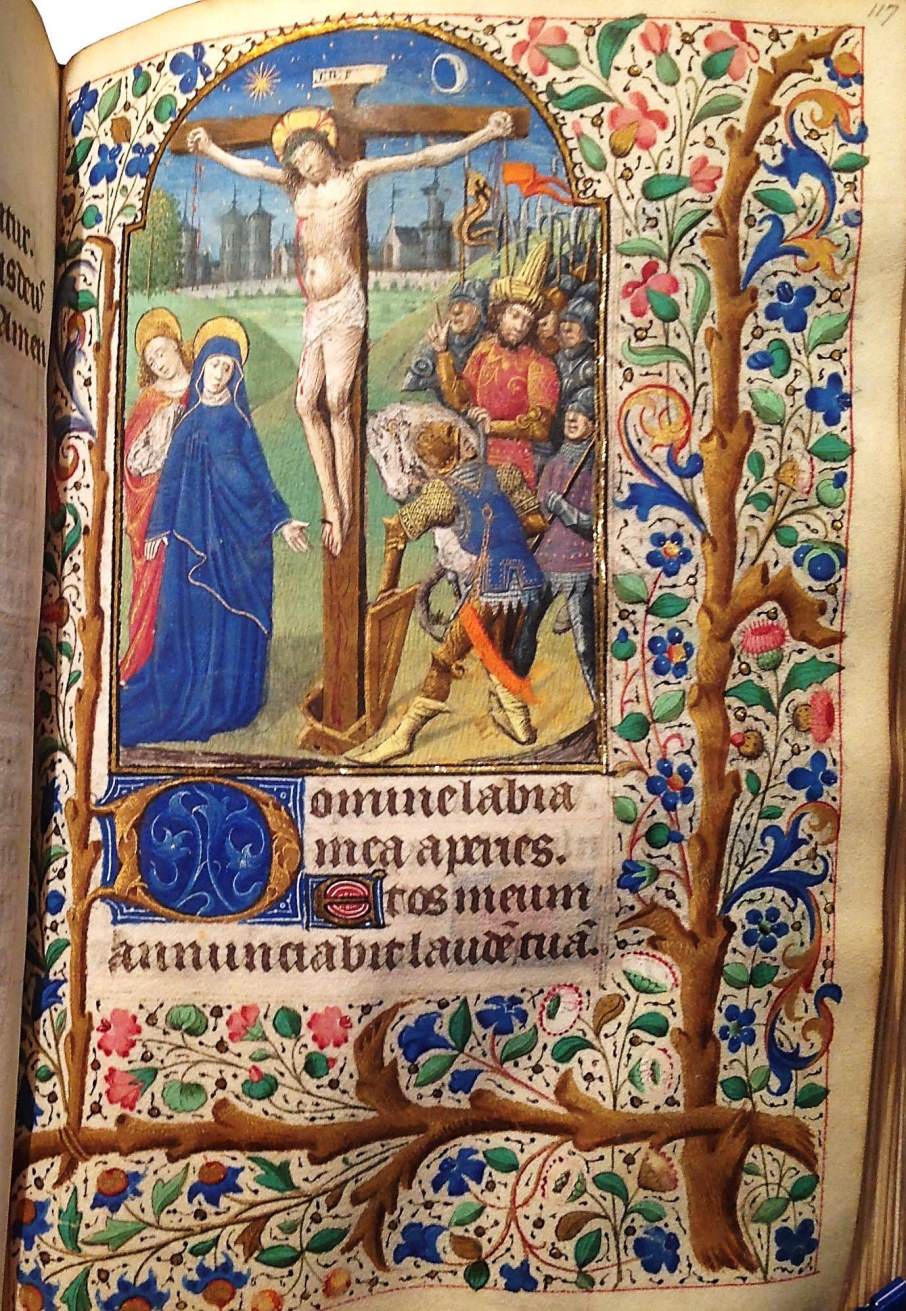 117
INRI
tur.
Amen
Domine labia
mea aperies.
Et os meum
annunciabit laudē tuā.